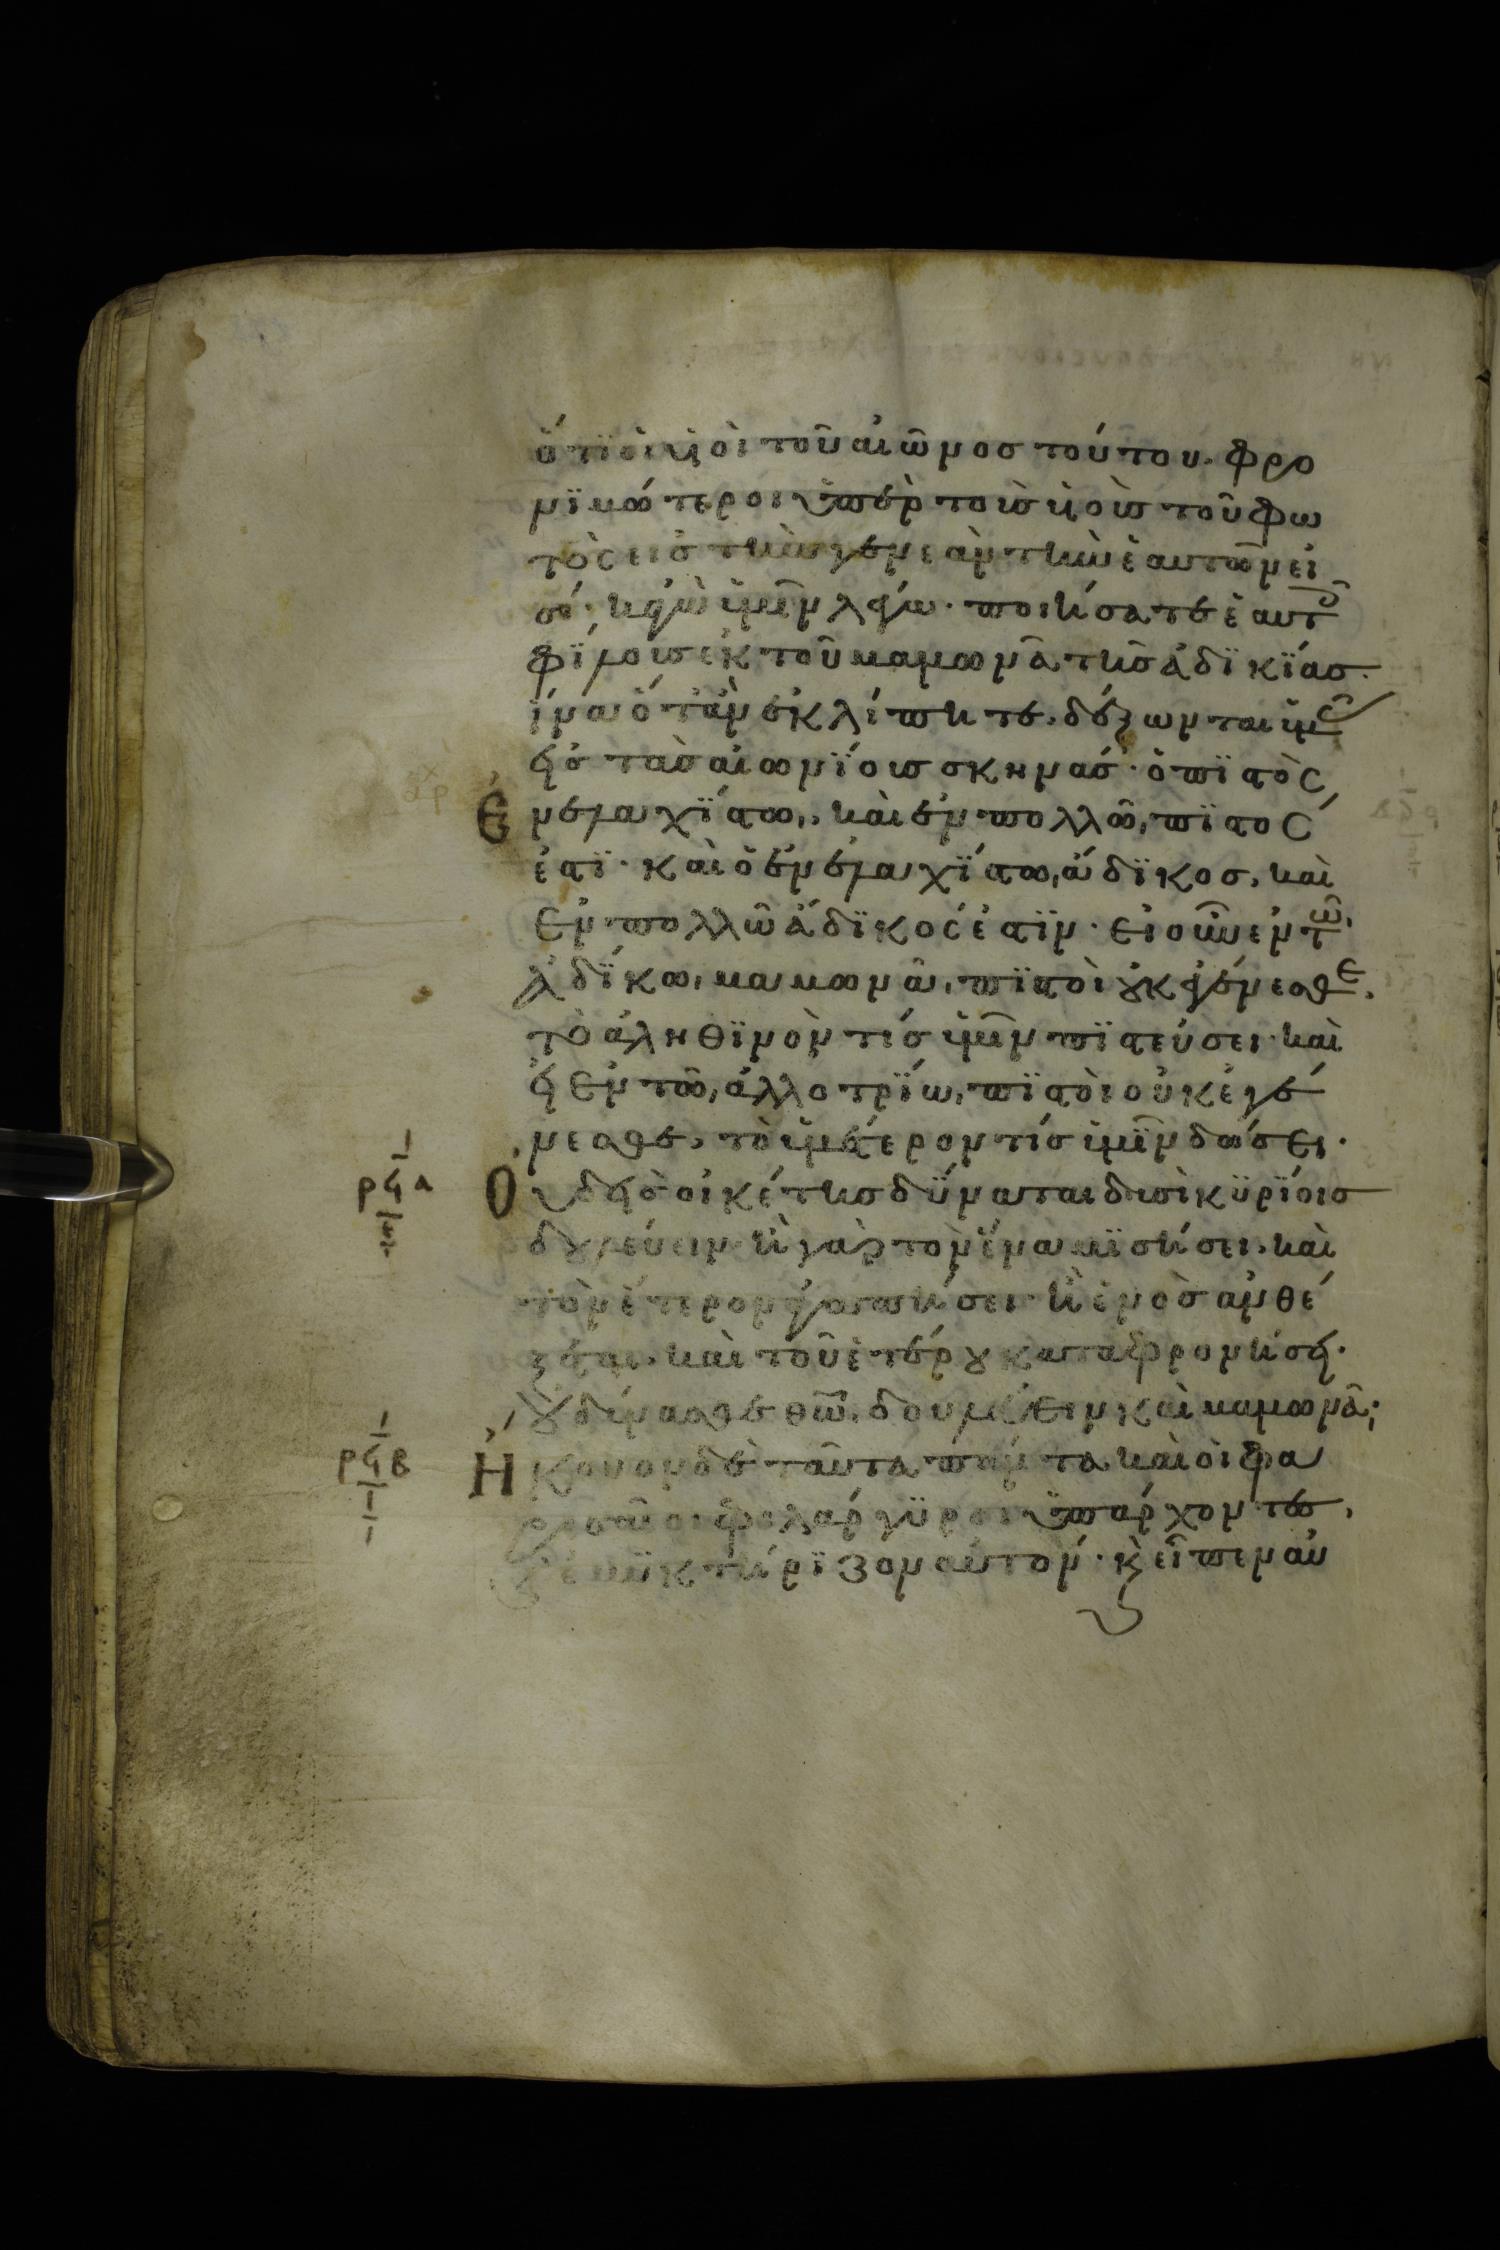 ὅτι οἱ υἱοὶ τοῦ αἰῶνοσ τούτου. φρο
νϊμώτεροι ὑπὲρ τοὺσ υἱοὺσ τοῦ φω
τὸς εἰσ τὴν γενεὰν τὴν ἑαυτῶν εἰ
σί· κἀγὼ ὑμῖν λέγω· ποιήσατε ἑαυτ
φίλουσ ἐκ τοῦ μαμωνᾶ τῆσ ἀδϊκϊασ.
ἵνα ὅταν ἐκλίπητε. δέξωνται ὑμ
εἰσ τὰσ αἰωνϊουσ σκηνάσ· ὁ πϊστὸς
Ἐν ἐλαχϊστω,. καὶ ἐν πολλῶ, πϊστος
ἐστϊ· καὶ ὁ ἐν ἐλαχϊστω, ἄδϊκοσ, καὶ
ἐν πολλῶ ἄδϊκός ἐστϊν· εἰ οὖν ἐν τῶ
ἀδϊκω, μαμωνᾶ, πϊστοὶ οὐκ ἐγένεσθε.
τὸ ἀληθϊνὸν τίσ ὑμῖν πϊστεύσει· καὶ
εἰ ἐν τῶ, ἀλλοτρϊω, πϊστοὶ οὐκ ἐγέ
νεσθε, τὸ ὑμέτερον τίσ ὑμῖν δώσει·
ρϟα
Οὐδεὶσ οἰκέτησ δΰναται δυσὶ κϋρϊοισ
δουλεύειν· ἢ γὰρ τὸν ἕνα μϊσήσει. καὶ
τὸν ἕτερον ἀγαπήσει· ἢ ἑνὸσ ἀνθέ
ξεται. καὶ τοῦ ἑτέρου καταφρονήσει·
οὐ δύνασθε θω. δουλεύειν καὶ μαμωνᾶ;
ρϟβ
Ἤκουον δὲ ταῦτα πάντα καὶ οἱ φα
ρισαῖοι φιλάργϋροι ὑπάρχοντεσ,
ἐξεμϋκτήρϊζον αὐτόν· κ εἶπεν αὐ